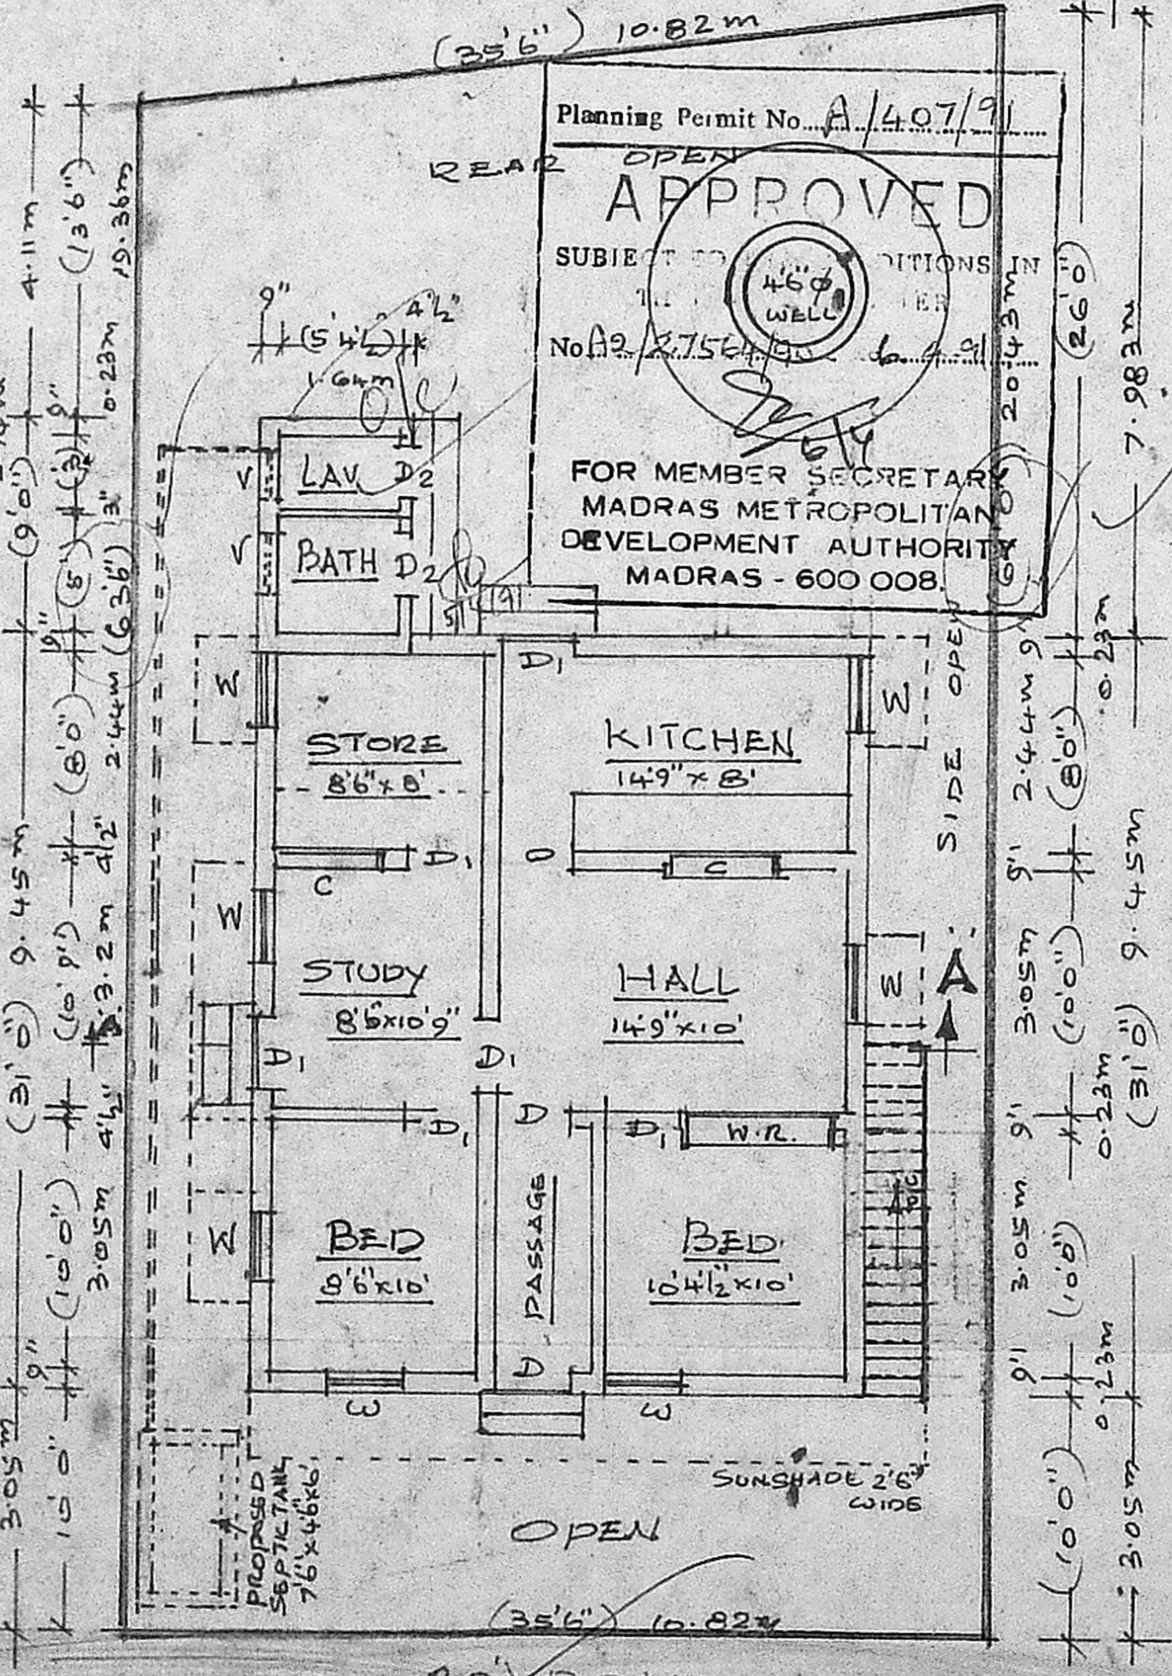 (35'6") 10.82m
Planning Permit No. A/407/91
REAR OPEN
APPROVED
SUBJECT TO DITIONS IN
4'6"Ø
WELL
No. A2/27564/90
6/4
FOR MEMBER SECRETARY
MADRAS METROPOLITAN
DEVELOPMENT AUTHORITY
MADRAS - 600 008.
9" (5'4½") 4½"
1.64m
LAV D2
V
BATH D2
V
D1
W
STORE
8'6"x8'
KITCHEN
14'9"x8'
W
D1
C
D
C
W
STUDY
8'6"x10'9"
HALL
14'9"x10'
W
A
D1
D1
D1
D
D1
W.R.
W
BED
8'6"x10'
PASSAGE
BED
10'4½"x10'
D
W
W
SUNSHADE 2'6"
WIDE
OPEN
PROPOSED
SEPTIC TANK
7'6"x4'6"x6'
(35'6") 10.82m
SIDE OPEN
4.11m
(13'6")
19.36m
0.23m
(9'0")
9"
(3')
3"
(5')
9"
(63'6")
(8'0")
2.44m
(31'0") 9.45m
4½"
(10'9")
3.2m
4½"
(10'0")
3.05m
9"
3.05m
10'0"
20.43m
(26'0")
7.983m
9"
0.23m
2.44m
(8'0")
9"
3.05m
(10'0")
(31'0") 9.45m
9"
0.23m
3.05m
(10'0")
9"
0.23m
(10'0")
3.05m